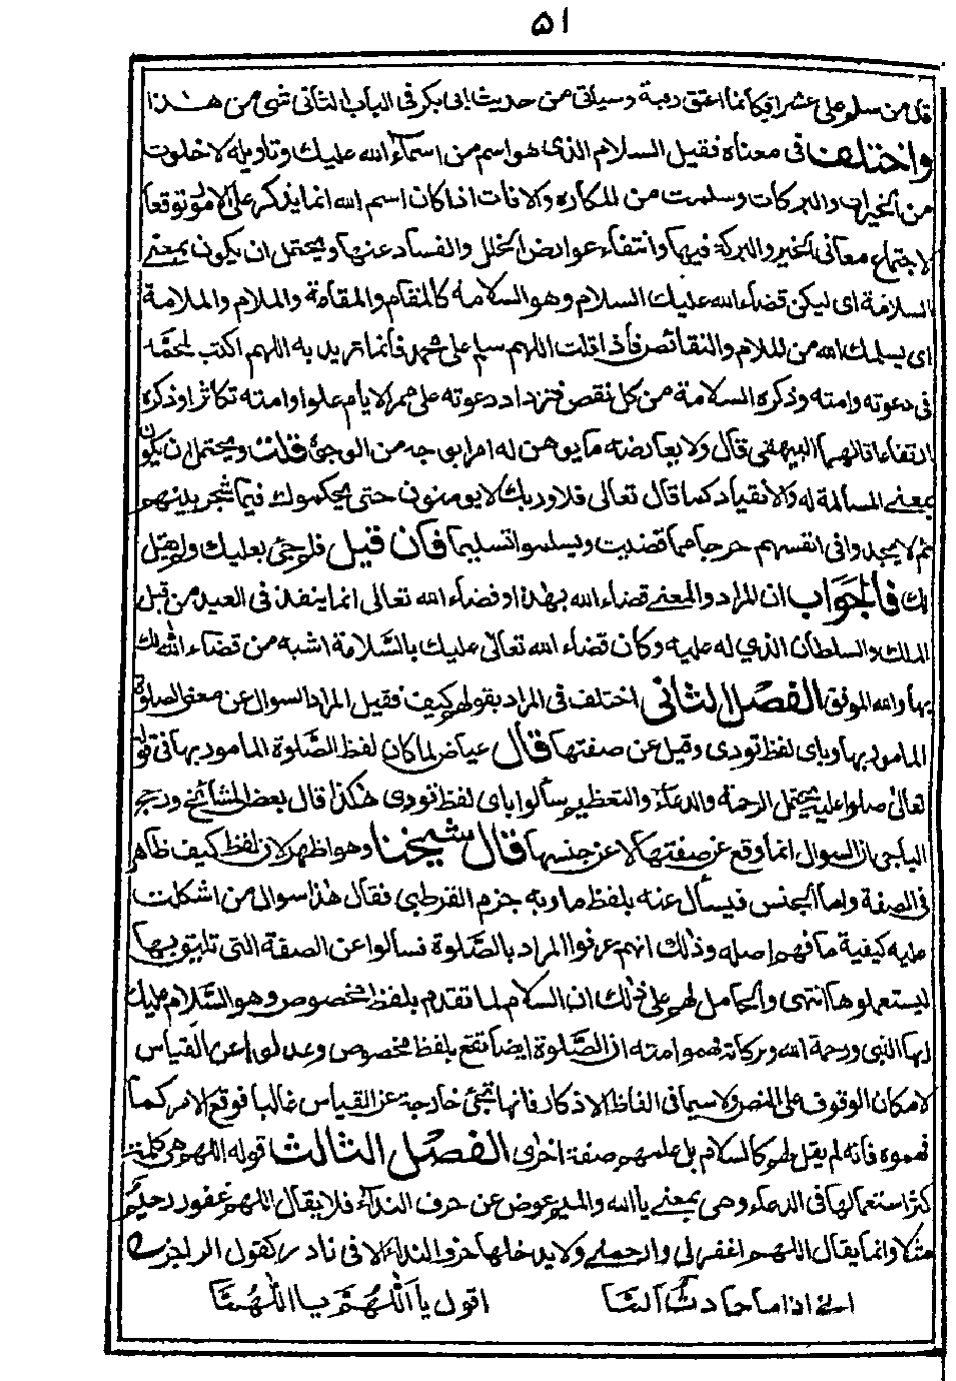 ٥١
قال من سلم على عشر فكأنما اعتق رقبة وسيأتى من حديث ابى بكر فى الباب الثانى شى من هذا
واختلف فى معناه فقيل السلام الذى هو اسم من اسماء الله عليك وتاويله لاخلوت
من الخيرات والبركات وسلمت من المكاره والافات اذا كان اسم الله انما يذكر على الامور توقعا
لاجتماع معانى الخير والبركة فيها وانتفاء عوارض الخلل والفساد عنها ويحتمل ان يكون بمعنى
السلامة اى ليكن قضاء الله عليك السلام وهو السلامة كالمقام والمقامة والملام والملامة
اى يسلمك الله من الملام والنقائص فأذا قلت اللهم سلم على محمد فأنما تريد به اللهم اكتب لمحمد
فى دعوته وامته وذكره السلامة من كل نقص فتزداد دعوته على ممر الايام علوا وامته تكاثرا وذكره
ارتفاعا قالهما البيهقى قال ولا يعارضه ما يوهن له امرا بوجه من الوجوه قلت ويحتمل ان يكون
بمعنى المسالمة له والانقياد كما قال تعالى فلا وربك لا يومنون حتى يحكموك فيما شجر بينهم
ثم لا يجدوا فى انفسهم حرجا مما قضيت ويسلموا تسليما فأن قيل فلم جئ بعليك ولم يقل
لك فالجواب ان المراد والمعنى قضاء الله بهذا وقضاء الله تعالى انما ينفذ فى العبد من قبل
الملك والسلطان الذي له عليه وكان قضاء الله تعالى عليك بالسَّلامة اشبه من قضاء الله لك
بها والله الموفق الفصل الثانى اختلف فى المراد بقولهم كيف فقيل المراد السوال عن معنى الصلوة
المامور بها وباى لفظ تودى وقيل عن صفتها قال عياض لما كان لفظ الصَّلوة المامور بها فى قوله
تعالى صلوا عليه يحتمل الرحمة والدعاء والتعظيم سألوا باى لفظ تودى هكذا قال بعض المشائخ ورجح
الباجى ان السوال انما وقع عن صفتها لا عن جنسها قال شيخنا وهو اظهر لان لفظ كيف ظاهر
فى الصفة واما الجنس فيسأل عنه بلفظ ما وبه جزم القرطبى فقال هذا سوال من اشكلت
عليه كيفية ما فهم اصله وذلك انهم عرفوا المراد بالصَّلوة فسألوا عن الصفة التى تليق بها
ليستعملوها انتهى والحامل لهم على ذلك ان السلام لما تقدم بلفظ مخصوص وهو السَّلام عليك
ايها النبى ورحمة الله وبركاته فهموا منه ان الصَّلوة ايضا تقع بلفظ مخصوص وعدلوا عن القياس
لامكان الوقوف على النص ولا سيما فى الفاظ الاذكار فانها تجئ خارجة عن القياس غالبا فوقع الامر كما
فهموه فانه لم يقل لهم كالسلام بل علمهم صفة اخرى الفصل الثالث قوله اللهم هى كلمة
كثر استعمالها فى الدعاء وهى بمعنى يا الله والميم عوض عن حرف النداء فلا يقال اللهم غفور رحيم
مثلا وانما يقال اللهم اغفر لى وارحمنى ولا يدخلها حرف النداء الا فى نادر كقول الراجز
انى اذا ما حادث المَّا اقول يا اَللّٰهُمَّ يا اللّٰهُمَّا